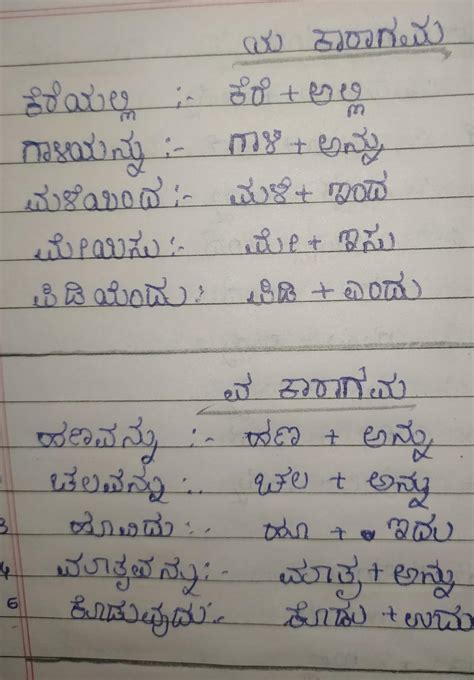 ಯ ಕಾರಾಗಮ
ಕೆರೆಯಲ್ಲಿ :- ಕೆರೆ + ಅಲ್ಲಿ
ಗಾಳಿಯನ್ನು :- ಗಾಳಿ + ಅನ್ನು
ಮಳೆಯಿಂದ :- ಮಳೆ + ಇಂದ
ಮೇಯಿಸು :- ಮೇ + ಇಸು
ಪಿಡಿಯೆಂದು : ಪಿಡಿ + ಎಂದು
ವ ಕಾರಾಗಮ
ಹಣವನ್ನು :- ಹಣ + ಅನ್ನು
ಛಲವನ್ನು :. ಛಲ + ಅನ್ನು
3 ಹೂವಿದು :. ಹೂ + ಇದು
4 ಮಾತೃವನ್ನು :- ಮಾತೃ + ಅನ್ನು
5 ಕೊಡುವುದು :. ಕೊಡು + ಉದು